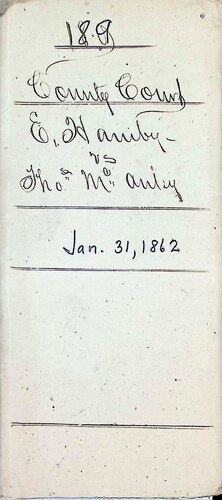 18.9
County Court
E. Hamby-
vs
Thos. McAnley
Jan. 31, 1862